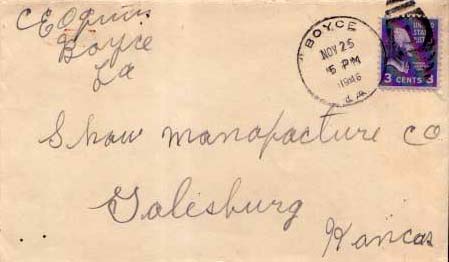 C E O Quin
Boyce
La
BOYCE
NOV 25
5 PM
1946
LA.
UNITED
STATES
3 CENTS 3
Shaw manafacture Co
Galesburg
Kancas